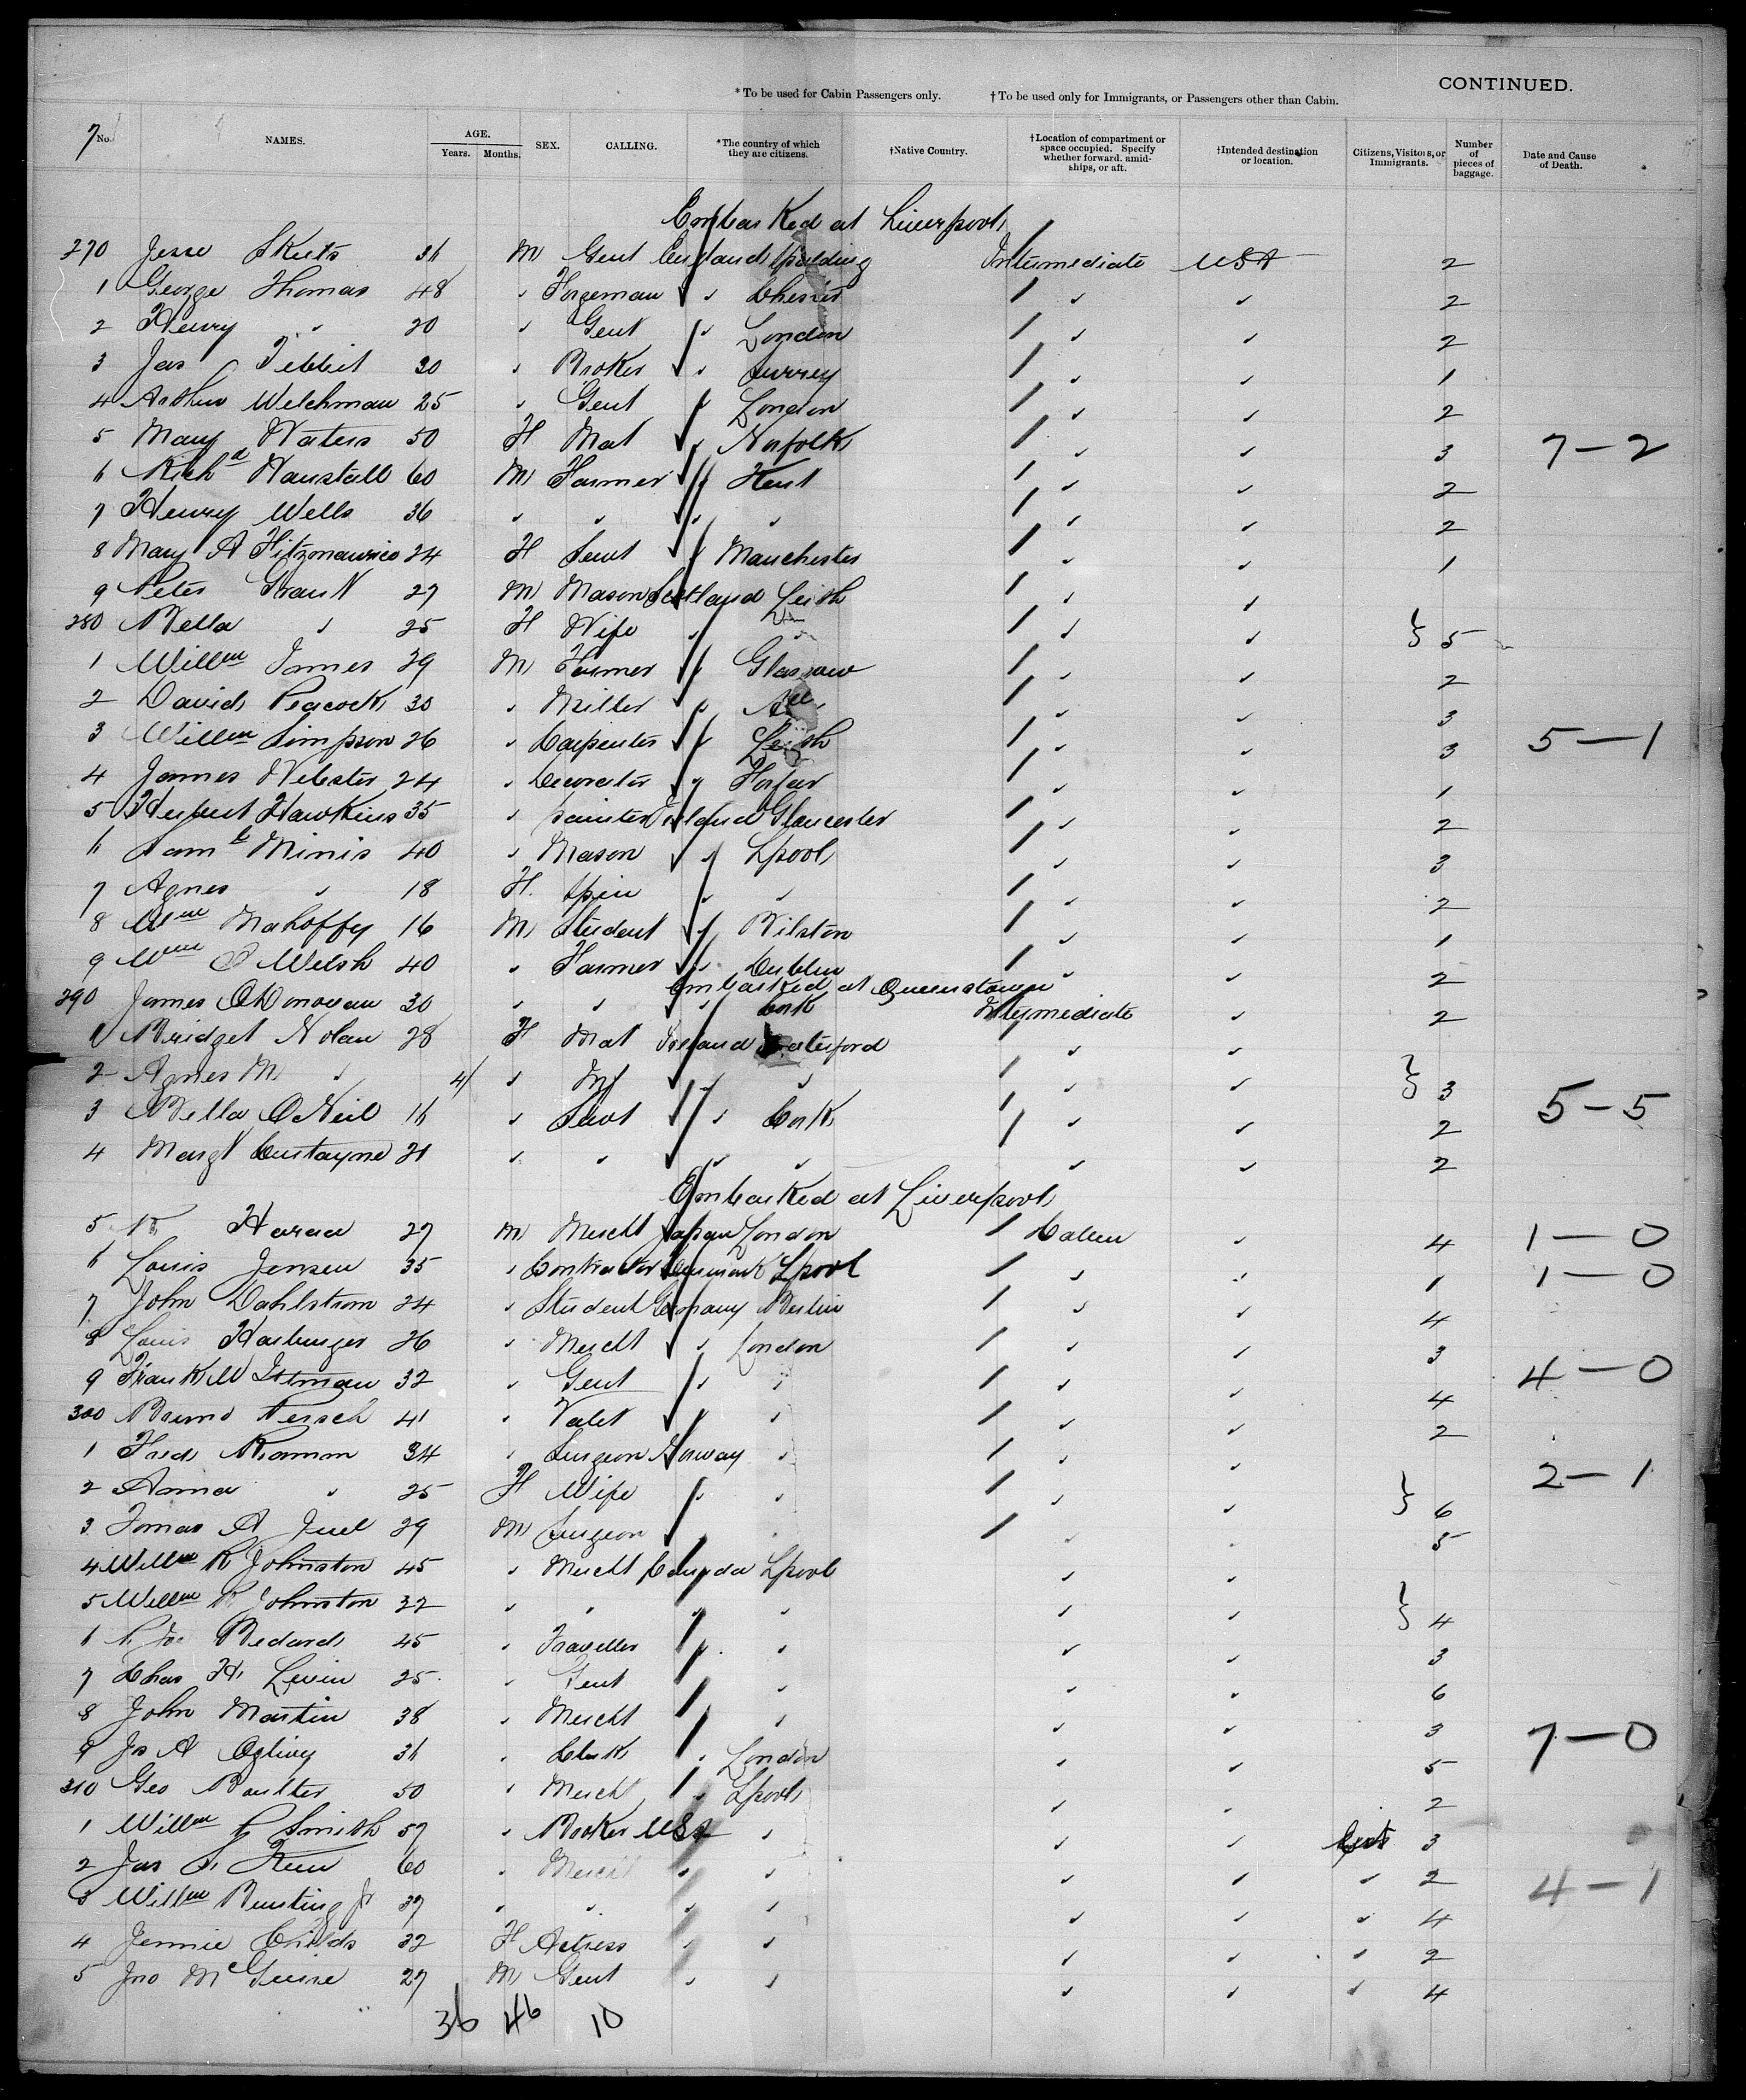 CONTINUED.
* To be used for Cabin Passengers only. † To be used only for Immigrants, or Passengers other than Cabin.
7 No. NAMES. AGE. Years. Months. SEX. CALLING. *The country of which they are citizens. †Native Country. †Location of compartment or space occupied. Specify whether forward, amidships, or aft. †Intended destination or location. Citizens, Visitors, or Immigrants. Number of pieces of baggage. Date and Cause of Death.
Embarked at Liverpool
270 Jesse 36 M Gent England Spalding Intermediate USA 2
1 George Thomas 48 " Forgeman " Chester " " 2
2 Henry " 20 " Gent " London " " 2
3 Jas Tebbit 30 " Broker " Surrey " " 1
4 Arthur Welchman 25 " Gent " London " " 2
5 Mary Waters 50 F Mat " Norfolk " " 3 7-2
6 Richd 60 M Farmer " Kent " " 2
7 Henry Wells 36 " " " " " " 2
8 Mary A Fitzmaurice 24 F Servt " Manchester " " 1
9 Peter Grant 27 M Mason Scotland Leith " "
280 Bella " 25 F Wife " " " " } 5
1 Willm Innes 29 M Farmer " Glasgow " " 2
2 David Peacock 30 " Miller " " " 3
3 Willm Simpson 26 " Carpenter " Leith " " 3 5-1
4 James Webster 24 " Decorator " Forfar " " 1
5 Herbert Hawkins 35 " painter England Gloucester " " 2
6 Saml Minis 40 " Mason " Lpool " " 3
7 Agnes " 18 F. Spin " " " " 2
8 Wm Mahoffy 16 M Student " Bilston " " 1
9 Wm Welsh 40 " Farmer " Dublin " " 2
Embarked at Queenstown
290 James ODonovan 30 " " " Cork Intermediate " 2
1 Bridget Nolan 28 F Mat Ireland Waterford " "
2 Agnes M " 4 " Inf " " " " } 3
3 Bella ONeil 16 " Servt " Cork " " 2 5-5
4 Margt 21 " " " " " " 2
Embarked at Liverpool
5 Harada 27 M Mercht Japan London Cabin " 4 1-0
6 Louis Jensen 35 " Contractor Denmark Lpool " " 1 1-0
7 John Dahlstrom 24 " Student Germany Berlin " " 4
8 Louis Harburger 26 " Mercht " London " " 3
9 Frank W 32 " Gent " " " " 4 4-0
300 Bruno 41 " Valet " " " " 2
1 Fred 34 " Surgeon Norway " " "
2 Anna " 25 F Wife " " " " } 6 2-1
3 Tomas A Juel 29 M Surgeon " " " " 5
4 Willm R Johnston 45 " Mercht Canada Lpool " "
5 Willm R Johnston 32 " " " " " " } 4
6 Bedard 45 " Traveller " " " " 3
7 Chas H. Levin 25 " Gent " " " " 6
8 John Martin 38 " Mercht " " " " 3
9 Js A Ogilvy 36 " Clerk " London " " 5 7-0
310 Geo Boulter 50 " Mercht " Lpool " " 2
1 Willm Smith 57 " Broker USA " " " Cits 3
2 Jas S. 60 " Mercht " " " " " 2
3 Willm Bunting Jr 37 " " " " " " " 4 4-1
4 Jennie Childs 32 F Actress " " " " " 2
5 Jno McGuire 27 M Gent " " " " " 4
36 46 10